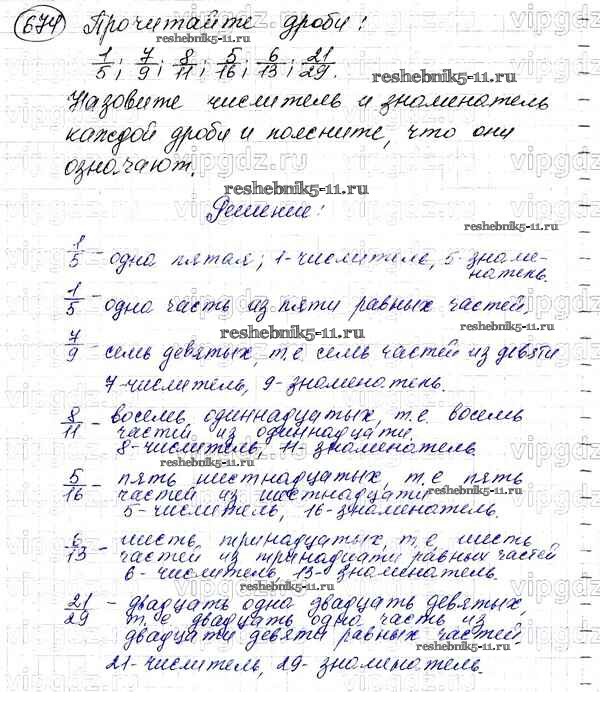 674 Прочитайте дроби:
1/5; 7/9; 8/11; 5/16; 6/13; 21/29.
Назовите числитель и знаменатель
каждой дроби и поясните, что они
означают.
Решение:
1/5 - одна пятая; 1-числитель, 5-знаме-
натель.
1/5 - одна часть из пяти равных частей.
7/9 - семь девятых, т.е. семь частей из девяти
7-числитель, 9-знаменатель.
8/11 - восемь одиннадцатых, т.е. восемь
частей из одиннадцати
8-числитель, 11-знаменатель.
5/16 - пять шестнадцатых, т.е пять
частей из шестнадцати
5-числитель, 16-знаменатель.
6/13 - шесть, тринадцатых, т.е. шесть
частей из тринадцати равных частей
6-числитель, 13-знаменатель.
21/29 - двадцать одна двадцать девятых,
т.е двадцать одна часть из
двадцати девяти равных частей.
21-числитель, 29-знаменатель.
reshebnik5-11.ru
reshebnik5-11.ru
reshebnik5-11.ru
reshebnik5-11.ru
reshebnik5-11.ru
reshebnik5-11.ru
reshebnik5-11.ru
reshebnik5-11.ru
vipgdz.ru